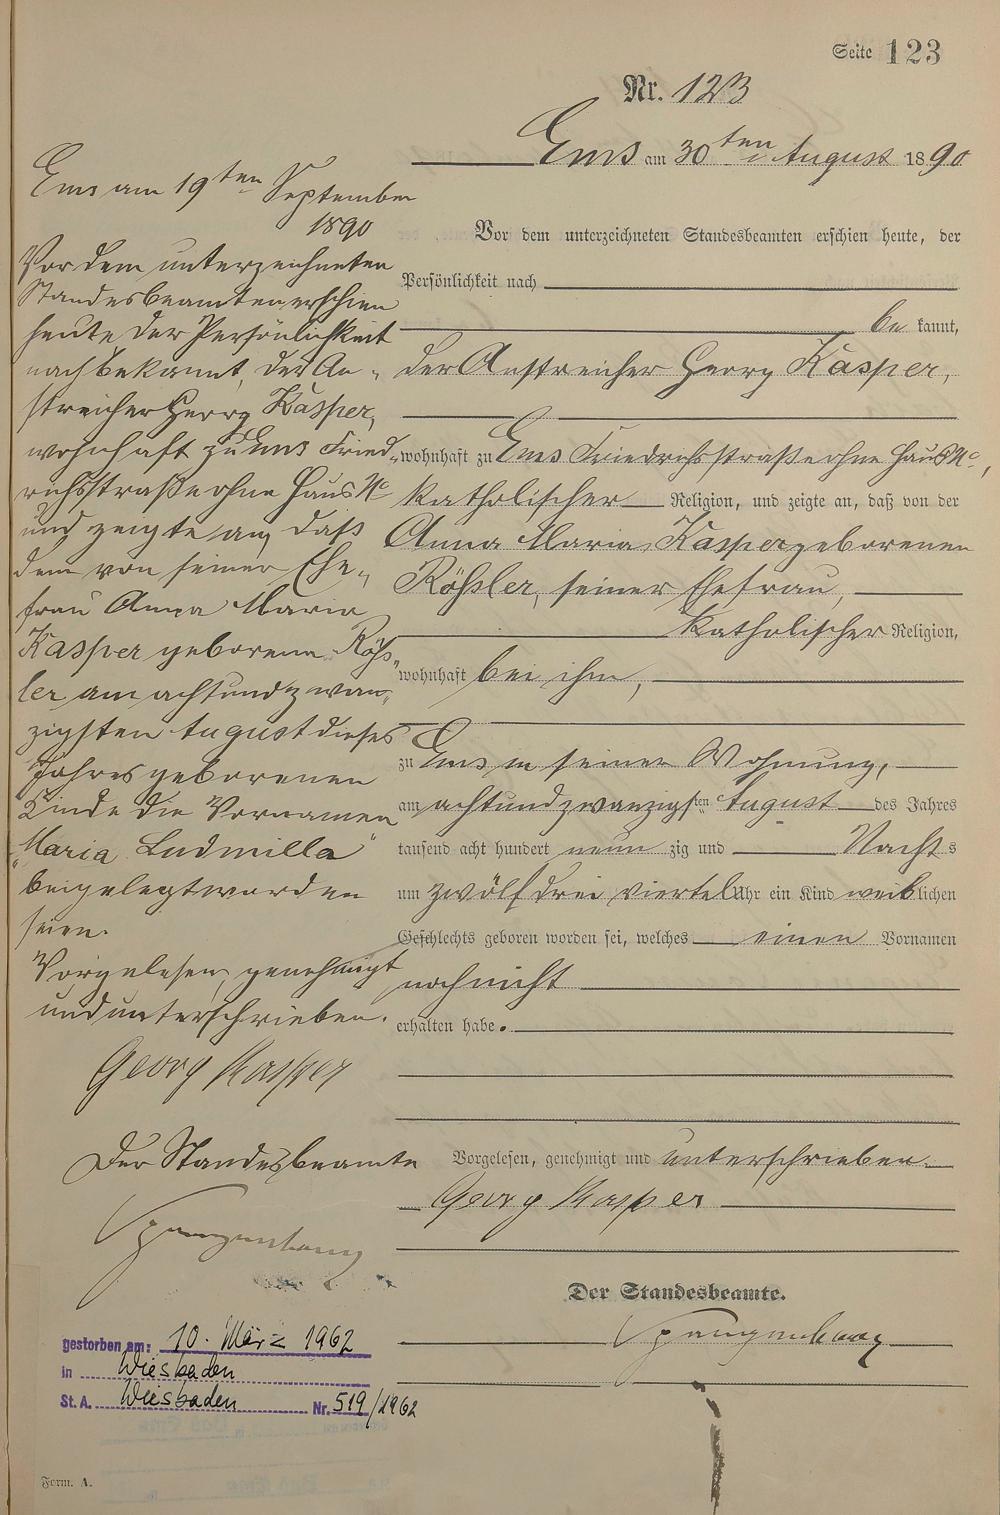 Seite 123
Nr. 123
Ems am 30ten August 1890
Vor dem unterzeichneten Standesbeamten erschien heute, der
Persönlichkeit nach
be kannt,
der Anstreicher Georg Kasper,
wohnhaft zu Ems Friedrichsstraße ohne Haus No,
katholischer Religion, und zeigte an, daß von der
Anna Maria Kasper geborenen
Rößler, seiner Ehefrau,
katholischer Religion,
wohnhaft bei ihm,
zu Ems in seiner Wohnung,
am achtundzwanzigsten August des Jahres
tausend acht hundert neun zig und Nachts
um zwölf drei viertel Uhr ein Kind weiblichen
Geschlechts geboren worden sei, welches einen Vornamen
noch nicht
erhalten habe.
Vorgelesen, genehmigt und unterschrieben.
Georg Kasper
Der Standesbeamte.
Spangenberg
Ems am 19ten September
1890
Vor dem unterzeichneten
Standesbeamten erschien
heute der Persönlichkeit
nach bekannt, der An-
streicher Georg Kasper,
wohnhaft zu Ems Fried-
richsstraße ohne Haus No
und zeigte an, daß
dem von seiner Ehe-
frau Anna Maria
Kasper geborenen Röß-
ler am achtundzwan-
zigsten August dieses
Jahres geborenen
Kinde die Vornamen
"Maria Ludmilla"
beigelegt worden
seien.
Vorgelesen, genehmigt
und unterschrieben.
Georg Kasper
Der Standesbeamte
Spangenberg
gestorben am: 10. März 1962
in Wiesbaden
St.A. Wiesbaden Nr. 519/1962
Form. A.